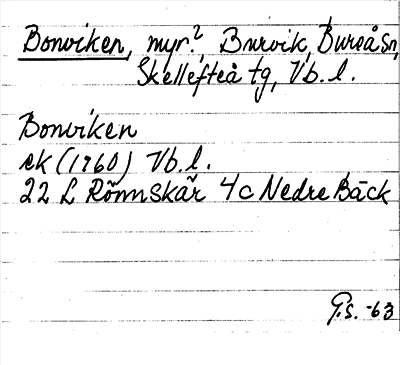 Bonviken, myr?, Burvik, Bureå sn,
Skellefteå tg, Vb. l.
Bonviken
ek (1960) Vb. l.
22 L Rönnskär 4c Nedre Bäck
G.S. -63